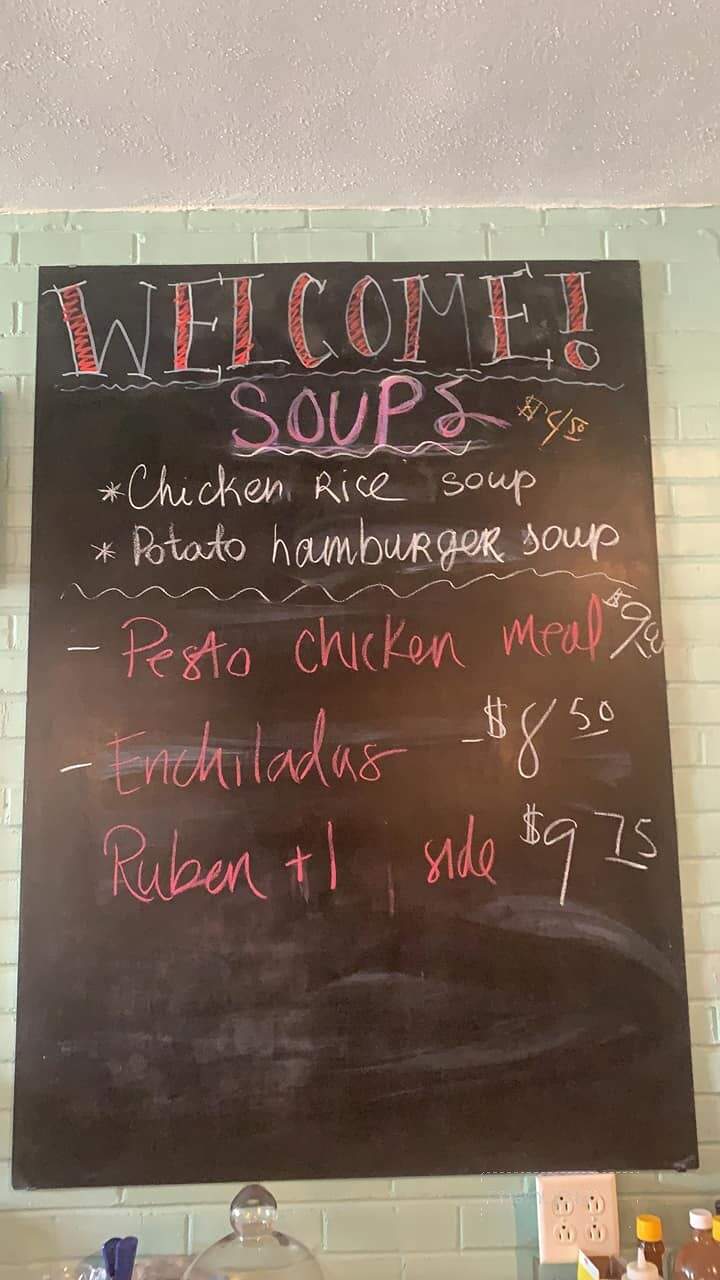 WELCOME!
SOUPS $4.50
*Chicken Rice soup
* Potato hamburger soup
- Pesto chicken meal
- Enchiladas - $8 50
Ruben +1 side $9 75